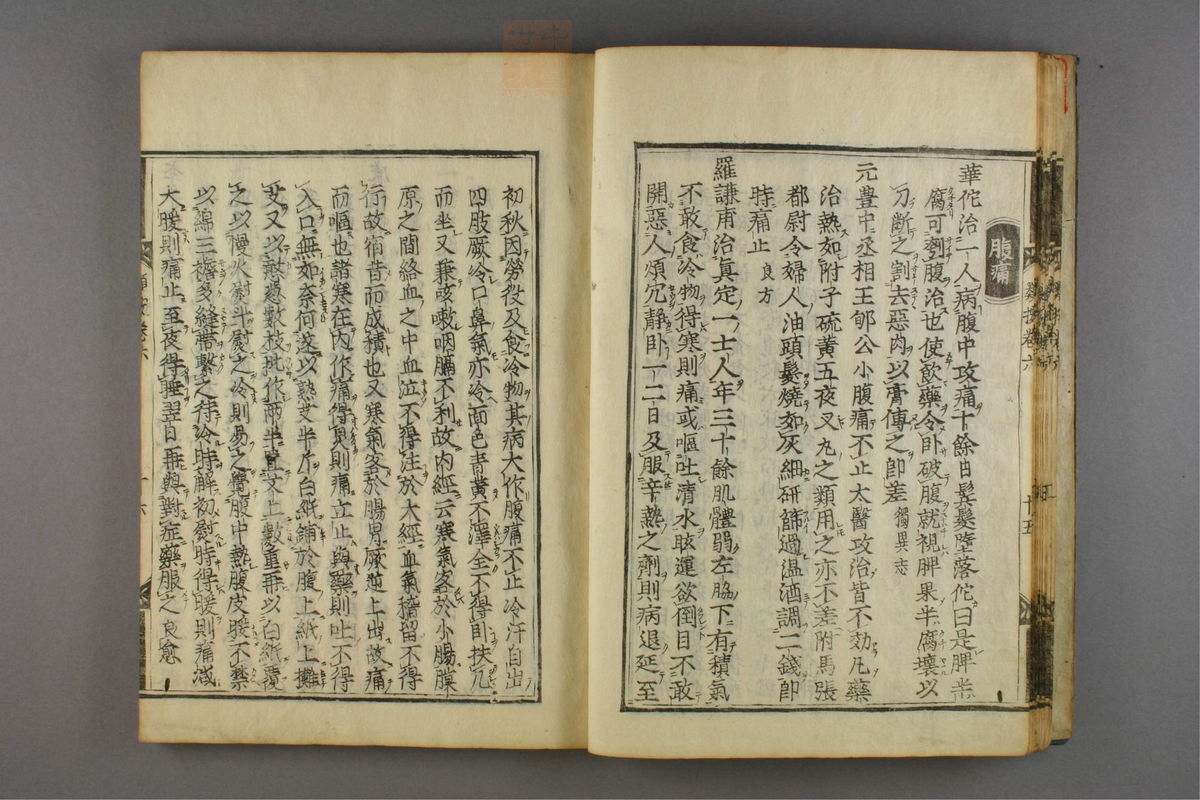 腹痛
華佗治一人病腹中攻痛十餘日鬚髮墮落佗曰是脾半
腐可刳腹治也使飲藥令卧破腹就視脾果半腐壞以
刀斷之割去惡肉以膏傅之卽差 獨異志
元豊中丞相王郇公小腹痛不止太醫攻治皆不効凡藥
治熱如附子硫黄五夜叉丸之類用之亦不差附馬張
都尉令婦人油頭髮燒如灰細研篩過温酒調二錢卽
時痛止 良方
羅謙甫治眞定一士人年三十餘肌體弱左脇下有積氣
不敢食冷物得寒則痛或嘔吐清水眩運欲倒目不敢
開惡人煩冗静卧一二日及服辛熱之劑則病退延至
初秋因勞役及食冷物其病大作腹痛不止冷汗自出
四肢厥冷口鼻氣亦冷面色青黄不澤全不得卧扶几
而坐又兼咳嗽咽膈不利故内經云寒氣客於小腸膜
原之間絡血之中血泣不得注於大經血氣稽留不得
行故宿昔而成積也又寒氣客於腸胃厥逆上出故痛
而嘔也諸寒在内作痛得炅則痛立止與藥則吐不得
入口無如奈何遂以熟艾半斤白紙鋪於腹上紙上攤
艾又以熟葱數枝批作兩半置艾上數重再以白紙覆
之以慢火熨斗熨之冷則易之覺腹中熱腹皮暖不禁
以綿三襜多縫帶繫之待冷時解初熨時得暖則痛減
大暖則痛止至夜得睡翌日再與對症藥服之良愈
卷六
十五